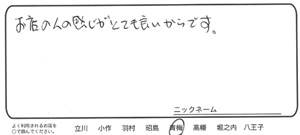 お店の人の感じがとても良いからです。
ニックネーム
よく利用されるお店を
○で囲んでください。 立川 小作 羽村 昭島 青梅 高幡 堀之内 八王子